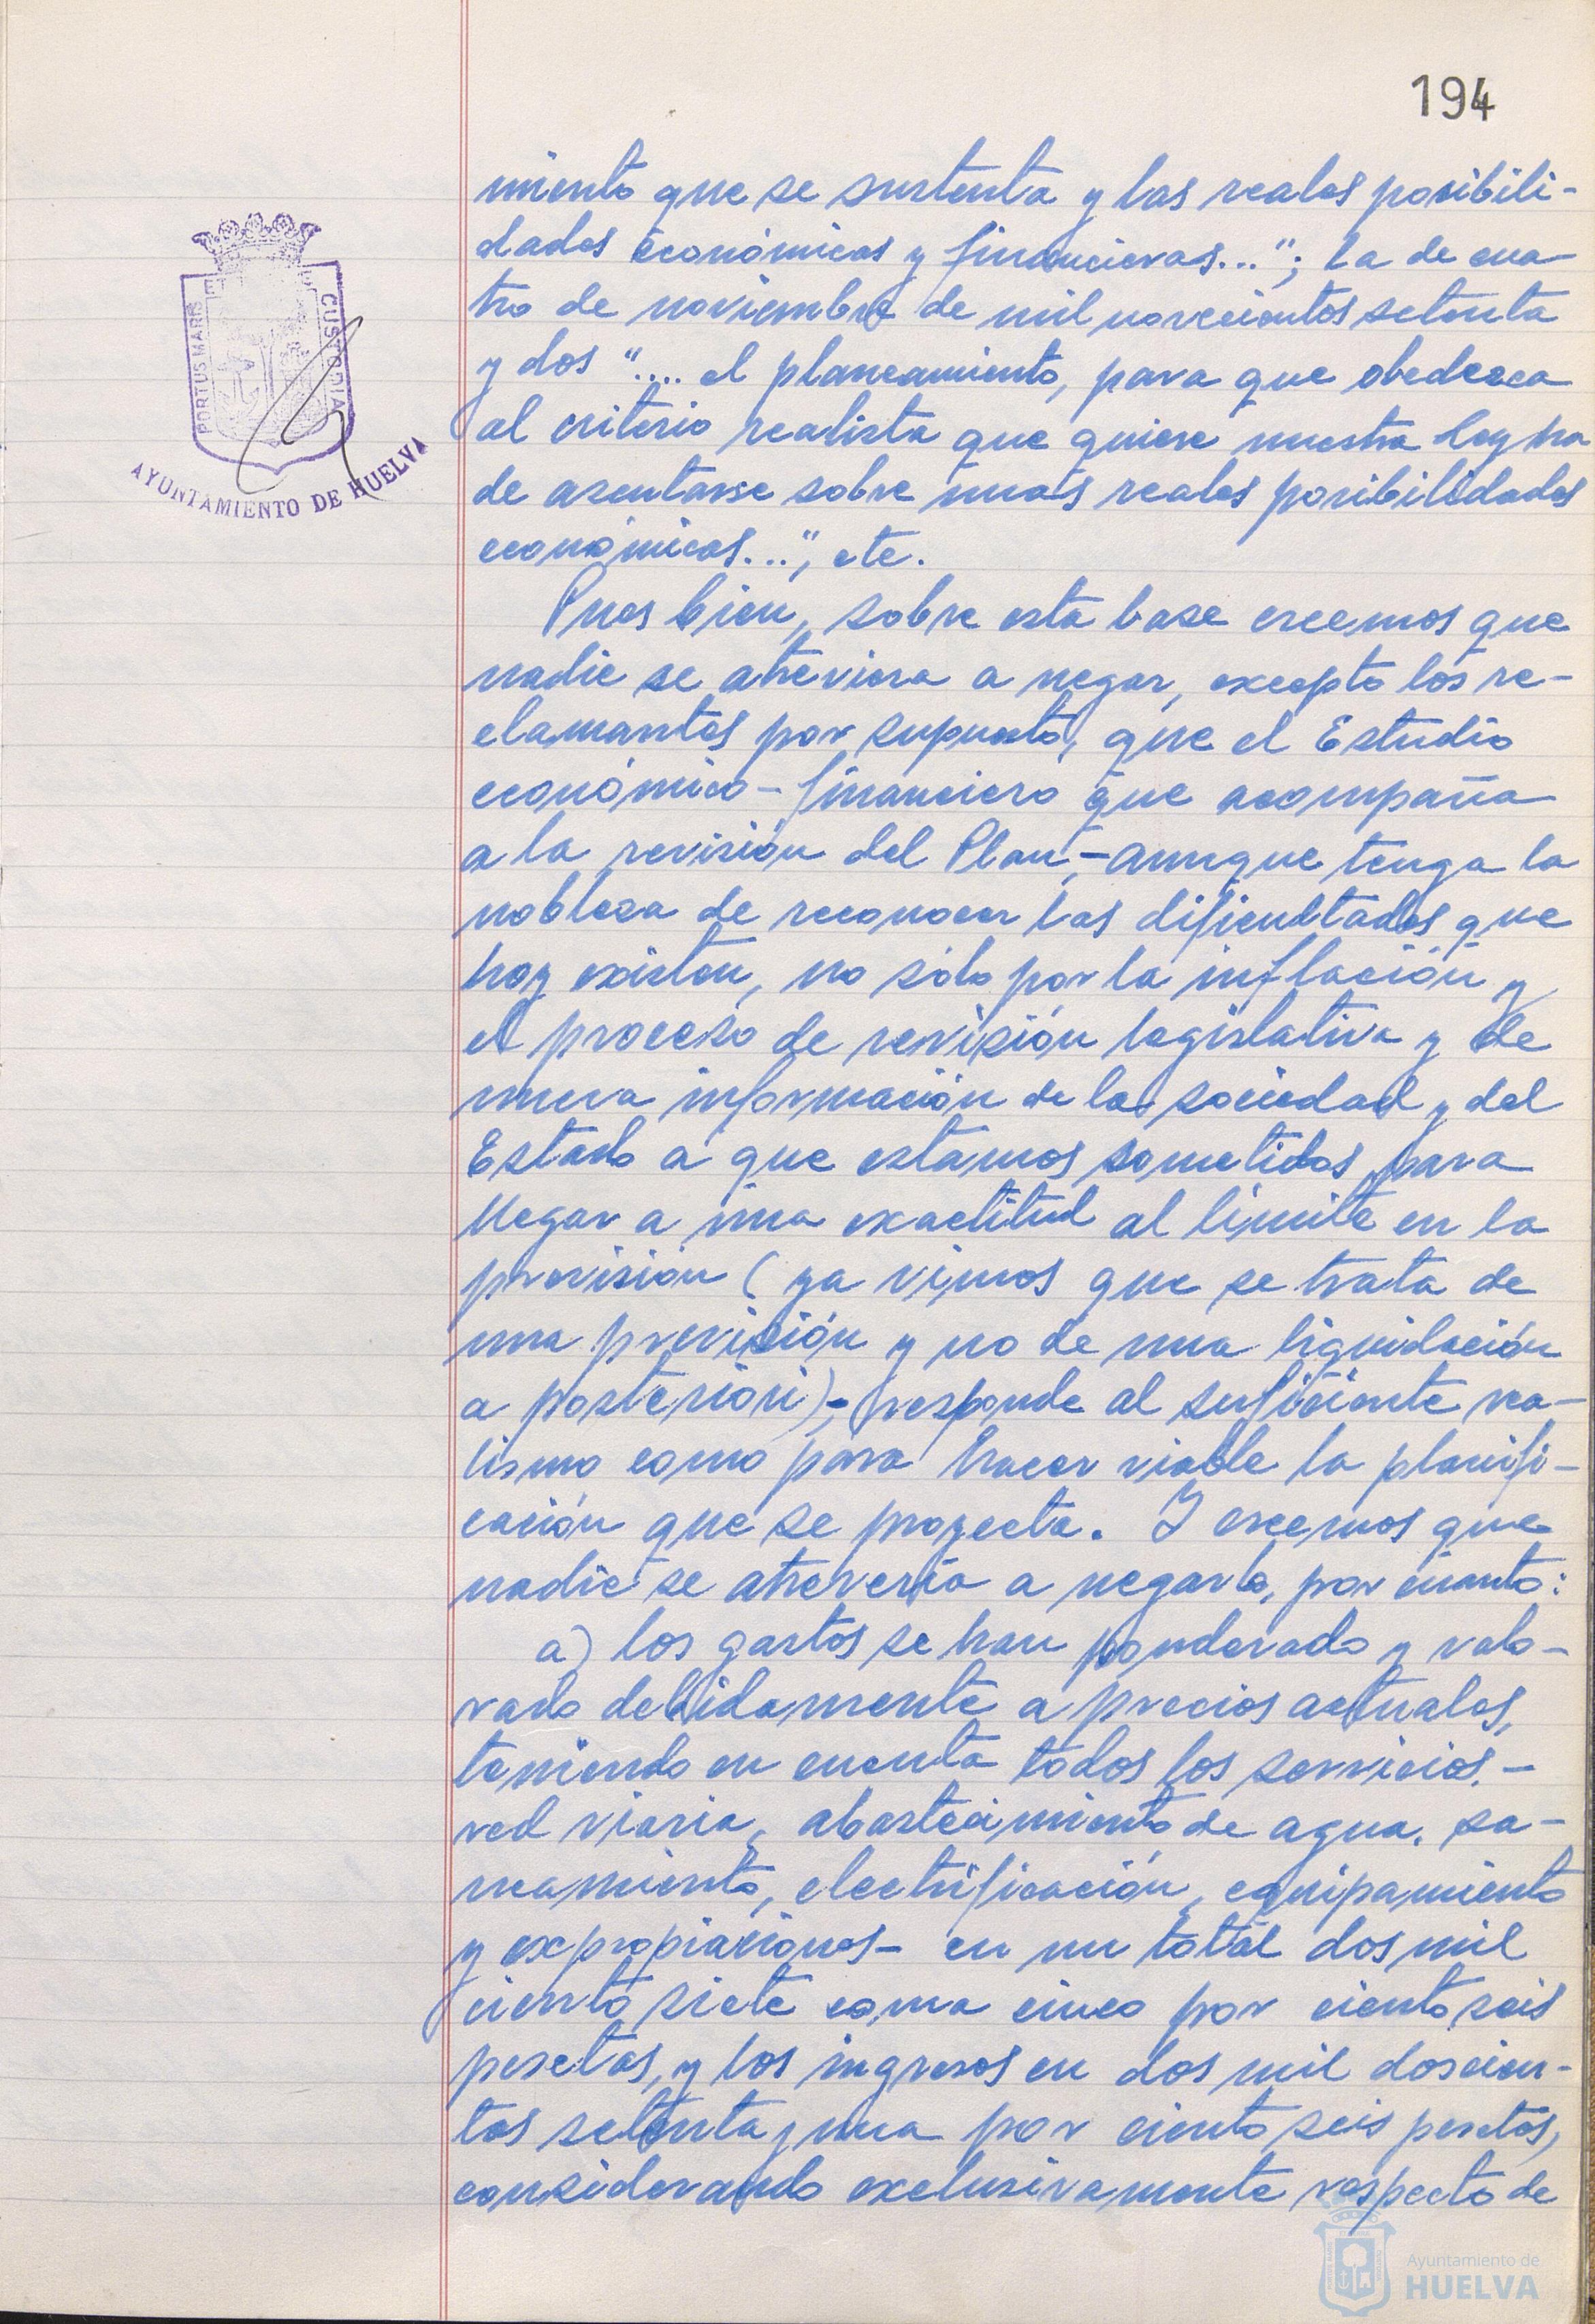 194
miento que se sustenta y las reales posibili-
dades económicas y financieras..."; la de cua-
tro de noviembre de mil novecientos setenta
y dos ".... el planeamiento, para que obedezca
al criterio realista que quiere nuestra ley ha
de asentarse sobre unas reales posibilidades
económicas...", etc.
Pues bien, sobre esta base creemos que
nadie se atreviera a negar, excepto los re-
clamantes por supuesto, que el Estudio
económico-financiero que acompaña
a la revisión del Plan,-aunque tenga la
nobleza de reconocer las dificultades que
hoy existen, no sólo por la inflación y
el proceso de revisión legislativa y de
nueva información de la sociedad y del
Estado a que estamos sometidos para
llegar a una exactitud al límite en la
previsión (ya vimos que se trata de
una previsión y no de una liquidación
a posteriori)-, responde al suficiente rea-
lismo como para hacer viable la planifi-
cación que se proyecta. Y creemos que
nadie se atrevería a negarlo, por cuanto:
a) los gastos se han ponderado y valo-
rado debidamente a precios actuales,
teniendo en cuenta todos los servicios,-
red viaria, abastecimiento de agua, sa-
neamiento, electrificación, equipamiento
y expropiaciones- en un total dos mil
ciento siete coma cinco por ciento seis
pesetas, y los ingresos en dos mil doscien-
tas setenta y una por ciento seis pesetas,
considerando exclusivamente respecto de
PORTUS MARIS
ET
CUSTODIA
AYUNTAMIENTO DE HUELVA
Ayuntamiento de
HUELVA